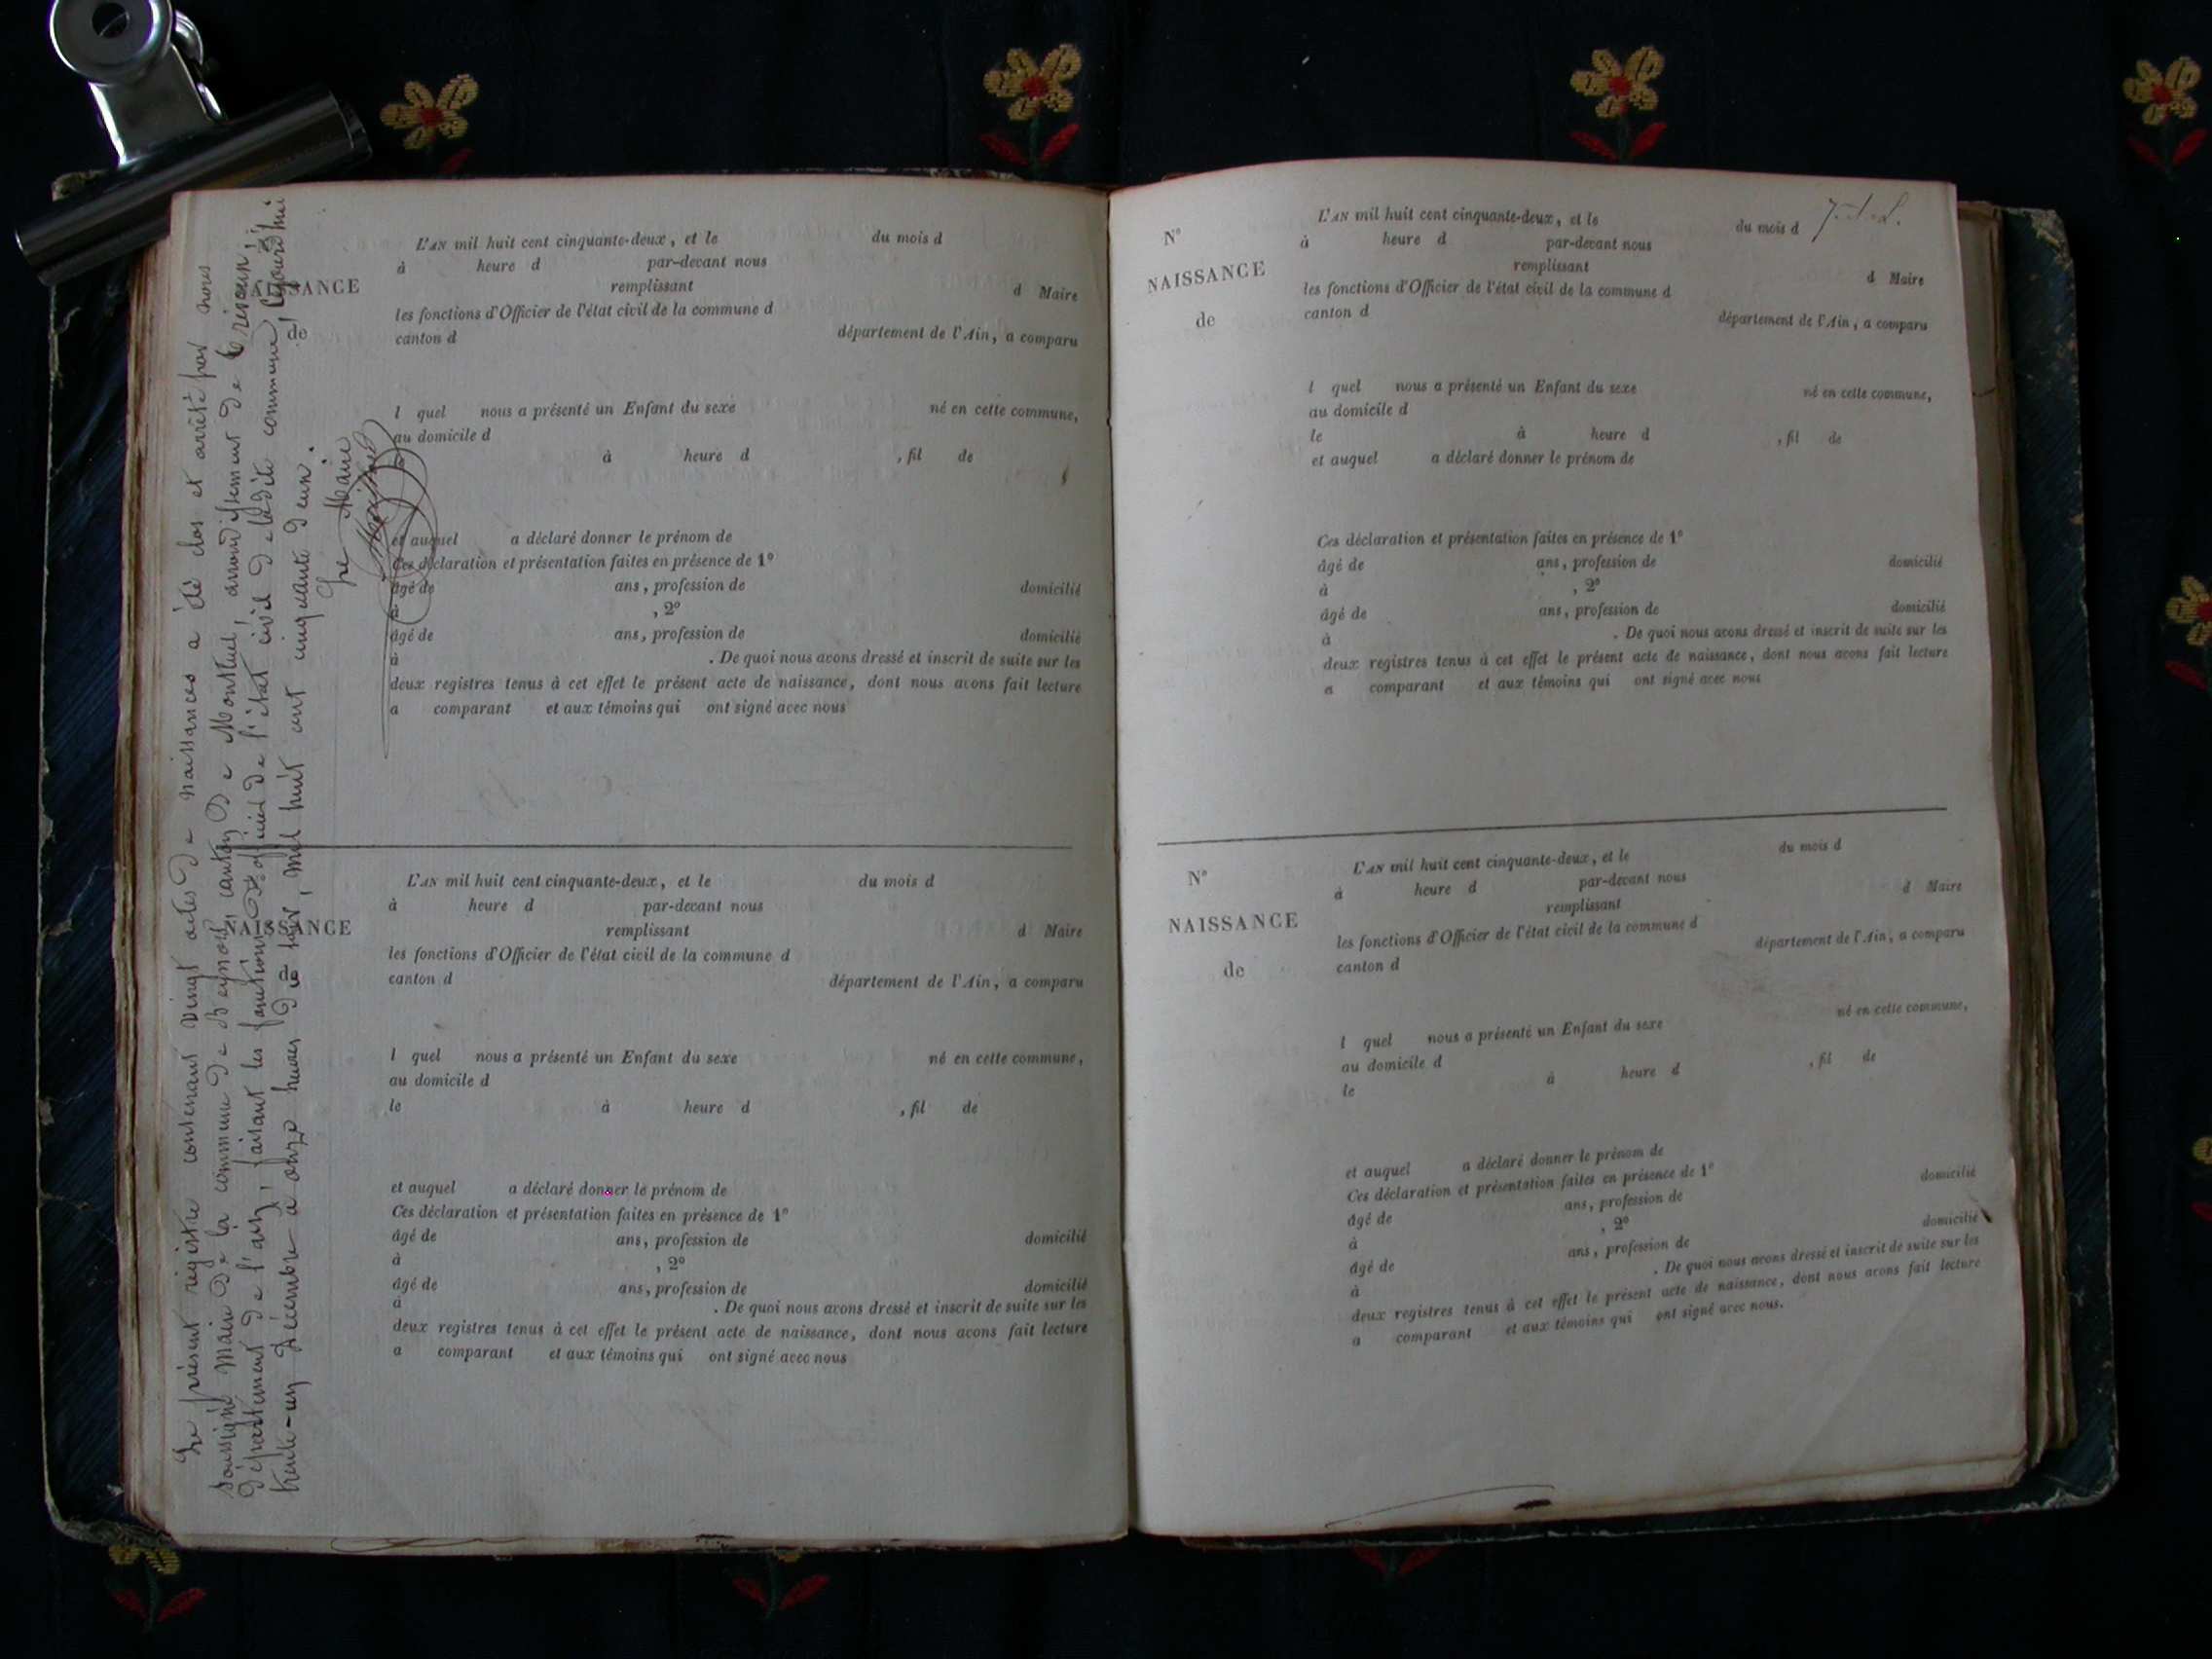 Le présent registre contenant vingt actes de naissances a été clos et arrêté par nous
soussigné Maire de la commune de Beynost, canton de Montluel, arrondissement de Trévoux,
département de l'ain, faisant les fonctions d'officier de l'état civil de ladite commune, aujourd'hui
trente-un Décembre à onze heures du soir, mil huit cent cinquante deux.
Le Maire
NAISSANCE
de
L'AN mil huit cent cinquante-deux, et le du mois d
à heure d par-devant nous
remplissant d Maire
les fonctions d'Officier de l'état civil de la commune d
canton d département de l'Ain, a comparu
l quel nous a présenté un Enfant du sexe né en cette commune,
au domicile d
à heure d , fil de
et auquel a déclaré donner le prénom de
Ces déclaration et présentation faites en présence de 1°
âgé de ans, profession de domicilié
à , 2°
âgé de ans, profession de domicilié
à . De quoi nous avons dressé et inscrit de suite sur les
deux registres tenus à cet effet le présent acte de naissance, dont nous avons fait lecture
a comparant et aux témoins qui ont signé avec nous
NAISSANCE
L'AN mil huit cent cinquante-deux, et le du mois d
à heure d par-devant nous
remplissant d Maire
les fonctions d'Officier de l'état civil de la commune d
canton d département de l'Ain, a comparu
l quel nous a présenté un Enfant du sexe né en cette commune,
au domicile d
le à heure d , fil de
et auquel a déclaré donner le prénom de
Ces déclaration et présentation faites en présence de 1°
âgé de ans, profession de domicilié
à , 2°
âgé de ans, profession de domicilié
à . De quoi nous avons dressé et inscrit de suite sur les
deux registres tenus à cet effet le présent acte de naissance, dont nous avons fait lecture
a comparant et aux témoins qui ont signé avec nous
N°
NAISSANCE
de
L'AN mil huit cent cinquante-deux, et le du mois d
à heure d par-devant nous
remplissant d Maire
les fonctions d'Officier de l'état civil de la commune d
canton d département de l'Ain, a comparu
l quel nous a présenté un Enfant du sexe né en cette commune,
au domicile d
le à heure d , fil de
et auquel a déclaré donner le prénom de
Ces déclaration et présentation faites en présence de 1°
âgé de ans, profession de domicilié
à , 2°
âgé de ans, profession de domicilié
à . De quoi nous avons dressé et inscrit de suite sur les
deux registres tenus à cet effet le présent acte de naissance, dont nous avons fait lecture
a comparant et aux témoins qui ont signé avec nous
N°
NAISSANCE
de
L'AN mil huit cent cinquante-deux, et le du mois d
à heure d par-devant nous
remplissant d Maire
les fonctions d'Officier de l'état civil de la commune d
canton d département de l'Ain, a comparu
l quel nous a présenté un Enfant du sexe né en cette commune,
au domicile d
le à heure d , fil de
et auquel a déclaré donner le prénom de
Ces déclaration et présentation faites en présence de 1°
âgé de ans, profession de domicilié
à , 2°
âgé de ans, profession de domicilié
à . De quoi nous avons dressé et inscrit de suite sur les
deux registres tenus à cet effet le présent acte de naissance, dont nous avons fait lecture
a comparant et aux témoins qui ont signé avec nous.